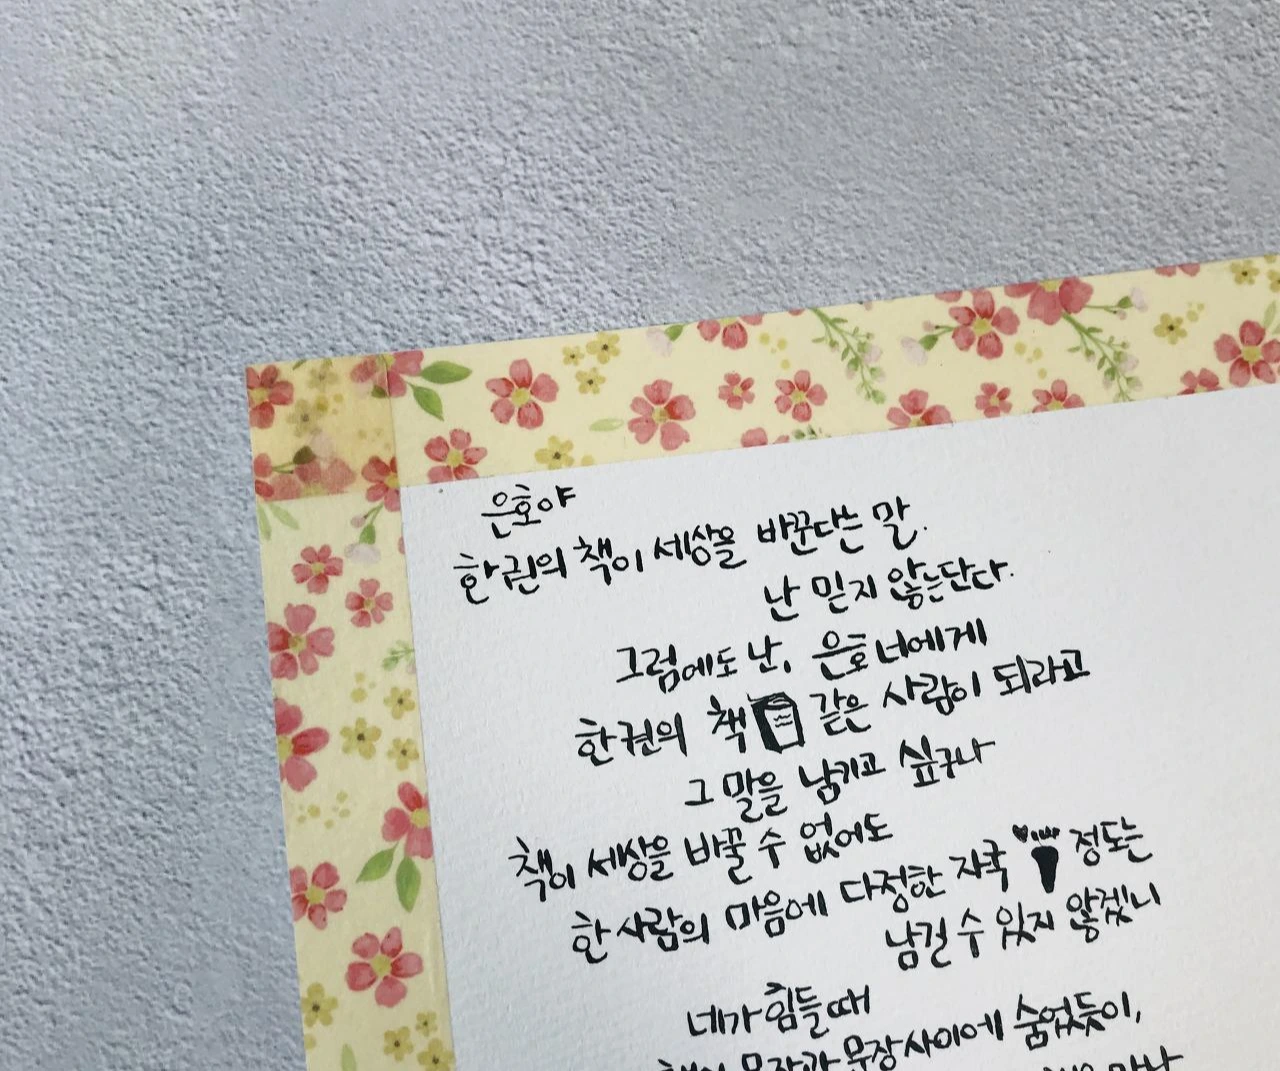 은호야
한 권의 책이 세상을 바꾼다는 말.
난 믿지 않는단다.
그럼에도 난, 은호 너에게
한 권의 책 같은 사람이 되라고
그 말을 남기고 싶구나
책이 세상을 바꿀 수 없어도
한 사람의 마음에 다정한 자국 정도는
남길 수 있지 않겠니
네가 힘들 때
문장과 문장 사이에 숨었듯이,